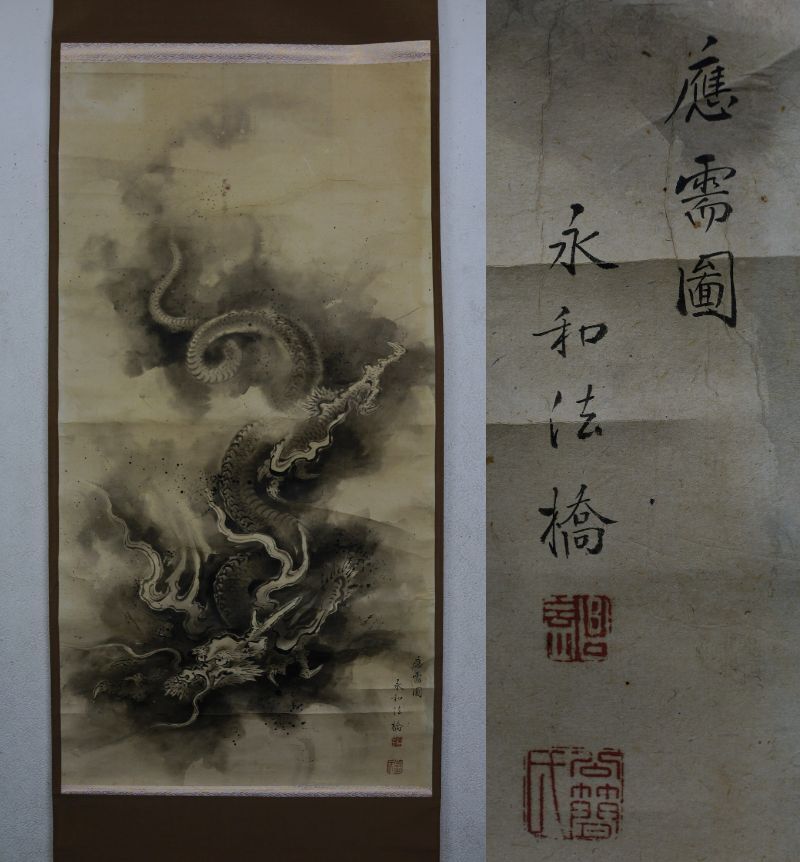 應需圖
永和法橋